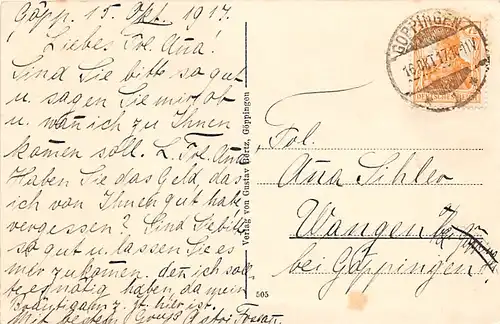 Göpp. 15. Okt. 1917.
Liebes Frl. Ana!
Sind Sie bitte so gut
u. sagen Sie mir ob
u. wan ich zu Ihnen
komen soll. L. Frl. Ana
Haben Sie das Geld, das
ich von Ihnen gut habe
vergessen? Sind Sie bitte
so gut u. lassen Sie es
mir zukomen. den ich soll-
te es haben, da mein
Bräutigahn z. Zt. hier ist.
Mit bestem Gruss
Verlag von Gustav Görtz, Göppingen
505
GÖPPINGEN
16.OKT.17
Frl.
Ana Sihler
Wangen
bei Göppingen